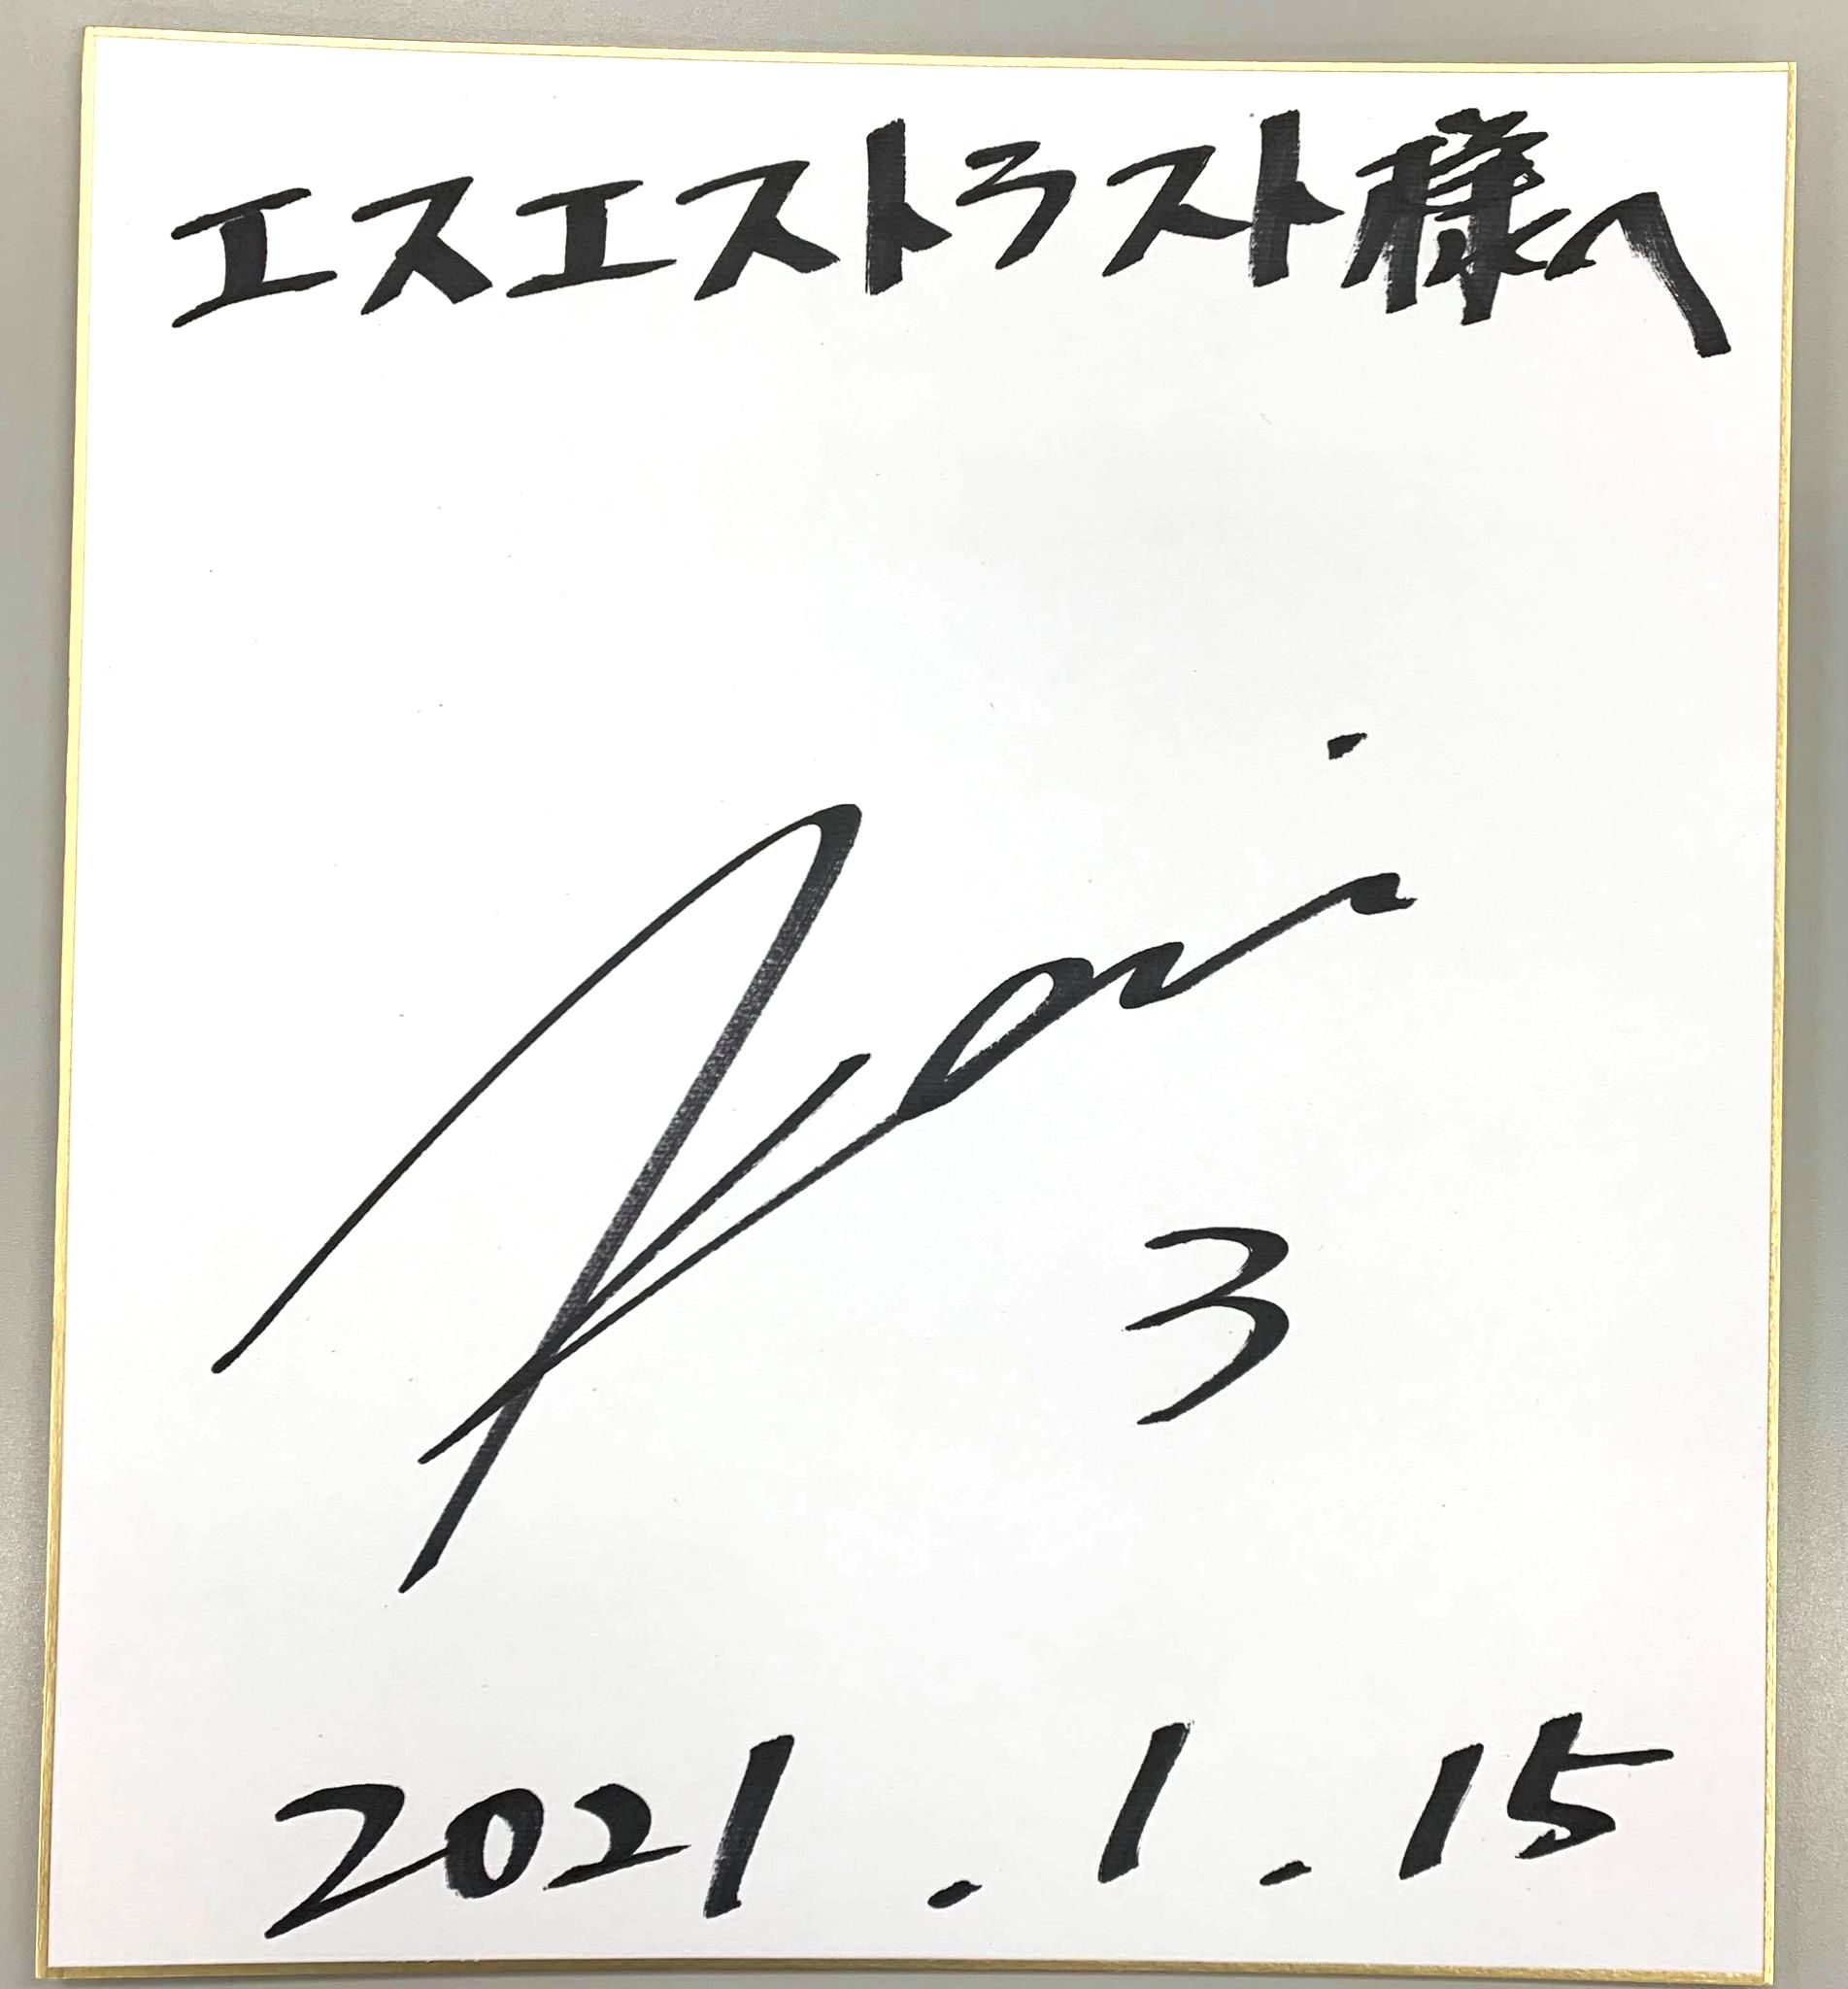 エスエストラスト様へ
3
2021.1.15